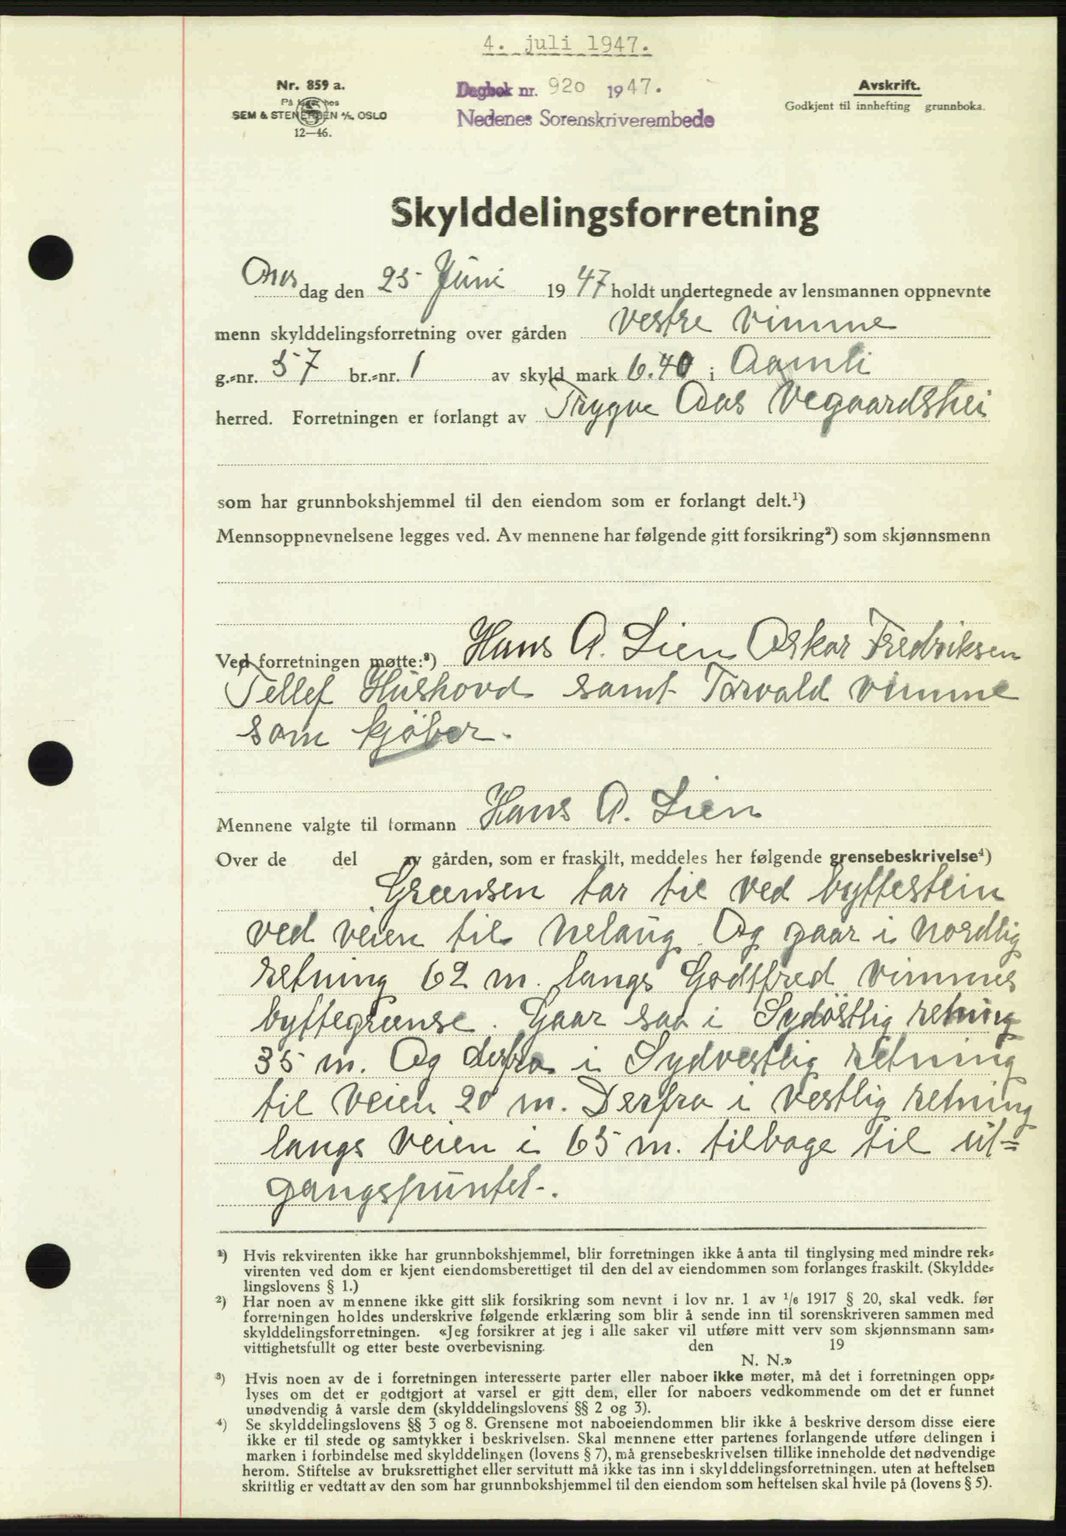 4. juli 1947.
Nr. 859 a.
SEM & STENERSEN A/S, OSLO
12—46.
Dagbok nr. 920 1947.
Nedenes Sorenskriverembede
Avskrift.
Godkjent til innhefting i grunnboka.
Skylddelingsforretning
Onsdag den 25 Juni 1947 holdt undertegnede av lensmannen oppnevnte
menn skylddelingsforretning over gården Vestre Vimme
g.-nr. 57 br.-nr. 1 av skyld mark 6.40 i Aamli
herred. Forretningen er forlangt av Trygve Aas Vegaardshei
som har grunnbokshjemmel til den eiendom som er forlangt delt.¹)
Mennsoppnevnelsene legges ved. Av mennene har følgende gitt forsikring²) som skjønnsmenn
Ved forretningen møtte:³) Hans A. Lien Oskar Fredriksen
Tellef Hushovd samt Torvald Vimme
som kjøber.
Mennene valgte til formann Hans A. Lien
Over de del av gården, som er fraskilt, meddeles her følgende grensebeskrivelse⁴)
Grænsen tar til ved byttestein
ved veien til Nelaug. Og gaar i Nordlig
retning 62 m. langs Godtfred Vimmes
byttegrænse. Gaar saa i Sydöstlig retning
35 m. Og derfra i Sydvestlig retning
til Veien 20 m. Derfra i Vestlig retning
langs Veien i 65 m. tilbage til ut=
gangspuntet.
¹) Hvis rekvirenten ikke har grunnbokshjemmel, blir forretningen ikke å anta til tinglysing med mindre rek-
virenten ved dom er kjent eiendomsberettiget til den del av eiendommen som forlanges fraskilt. (Skyldde-
lingslovens § 1.)
²) Har noen av mennene ikke gitt slik forsikring som nevnt i lov nr. 1 av 1/6 1917 § 20, skal vedk. før
forretningen holdes underskrive følgende erklæring som blir å sende inn til sorenskriveren sammen med
skylddelingsforretningen. «Jeg forsikrer at jeg i alle saker vil utføre mitt verv som skjønnsmann sam-
vittighetsfullt og etter beste overbevisning. den 19
N. N.»
³) Hvis noen av de i forretningen interesserte parter eller naboer ikke møter, må det i forretningen opp-
lyses om det er godtgjort at varsel er gitt dem, eller for naboers vedkommende om det er funnet
unødvendig å varsle dem (skylddelingslovens §§ 2 og 3).
⁴) Se skylddelingslovens §§ 3 og 8. Grensene mot naboeiendommen blir ikke å beskrive dersom disse eiere
ikke er til stede og samtykker i beskrivelsen. Skal mennene etter partenes forlangende utføre delingen i
marken i forbindelse med skylddelingen (lovens § 7), må grensebeskrivelsen tillike inneholde det nødvendige
herom. Stiftelse av bruksrettighet eller servitutt må ikke tas inn i skylddelingsforretningen. uten at heftelsen
skriftlig er vedtatt av den som har grunnbokshjemmel til den eiendom som heftelsen skal hvile på (lovens § 5).